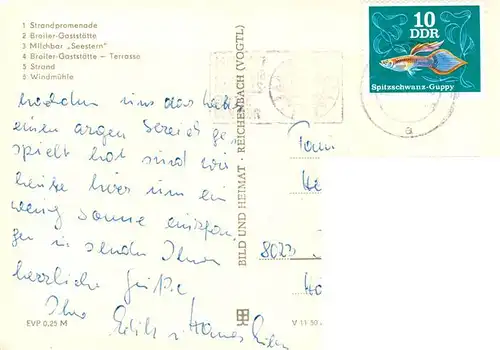 1 Strandpromenade
2 Broiler-Gaststätte
3 Milchbar „Seestern"
4 Broiler-Gaststätte - Terrasse
5 Strand
6 Windmühle
10
DDR
Spitzschwanz-Guppy
nachdem uns das
einen argen Streich ge-
spielt hat sind wir
heute hier um ein
wenig Sonne einzufan-
gen u. senden Ihnen
herzliche Grüße
Ihre
Edith u. Hannes
EVP 0,25 M
BILD UND HEIMAT · REICHENBACH (VOGTL)
802
V 11 50